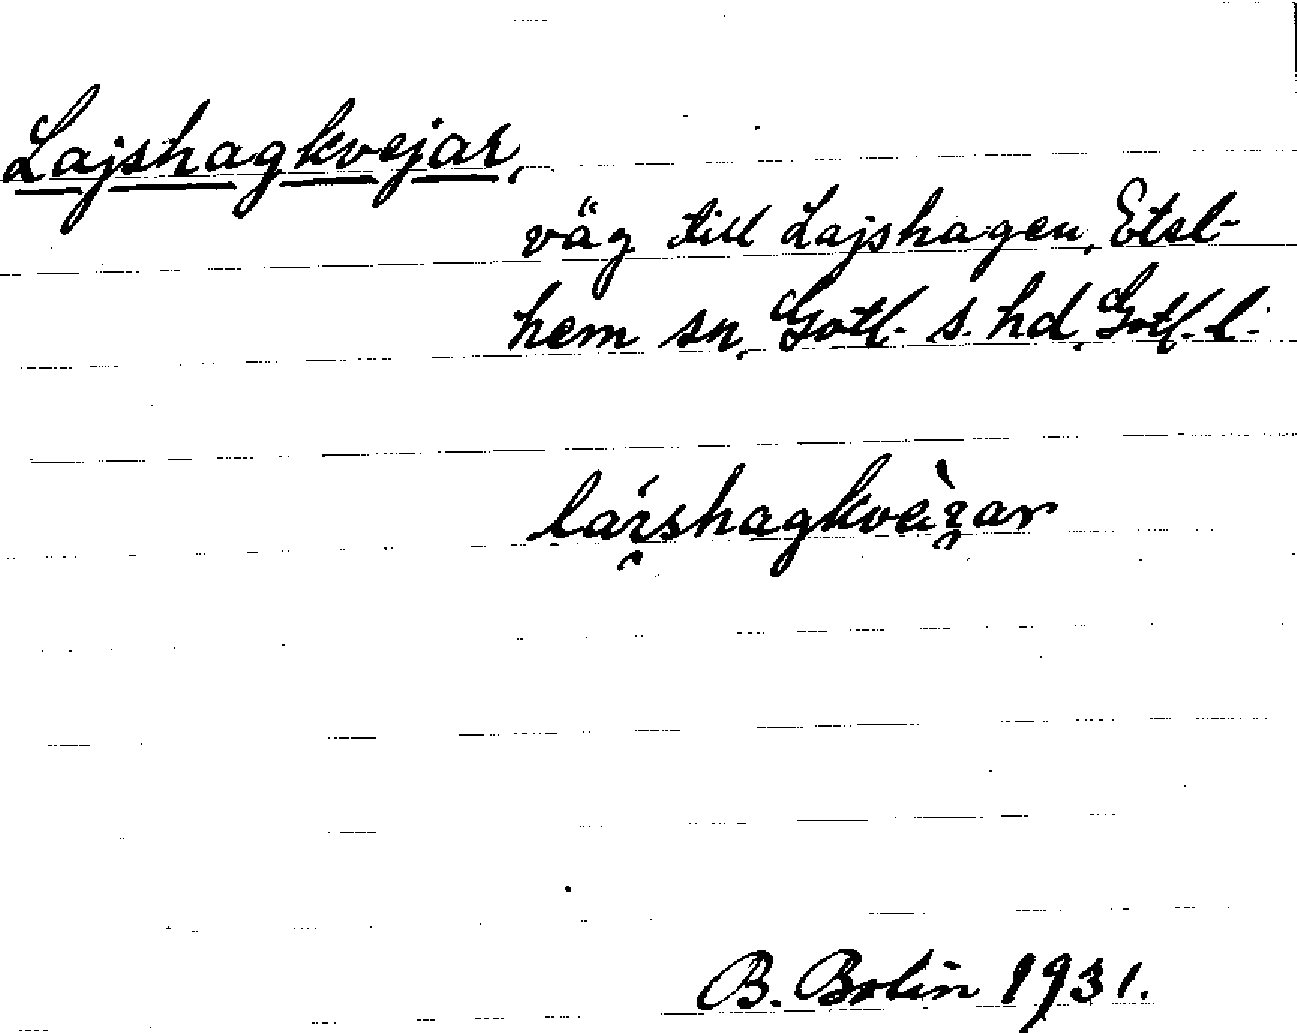 Lajshagkvejar,
väg till Lajshagen, Etel-
hem sn, Gotl. s. hd. Gotl. l.
B. Bolin 1931.